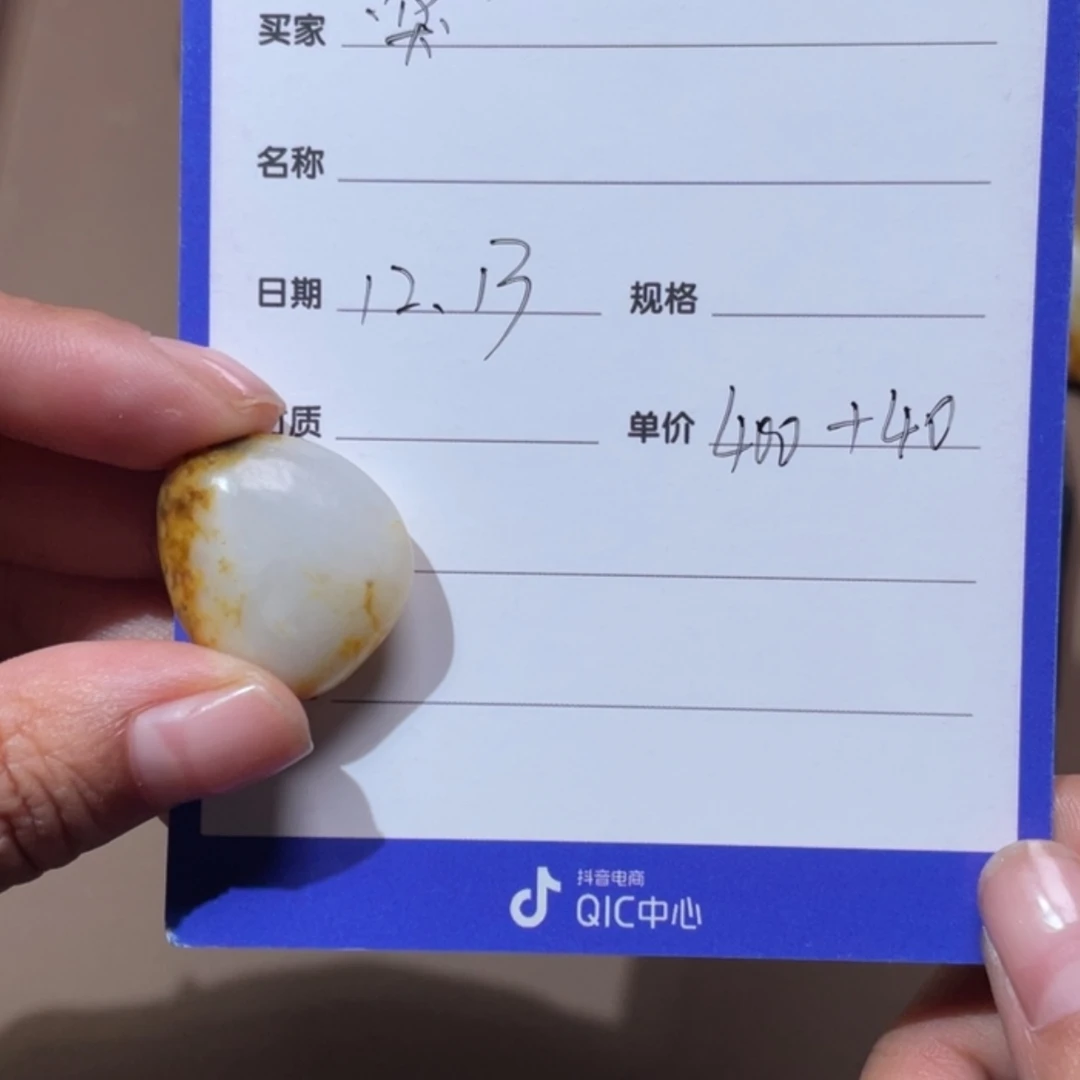 买家
名称
日期 12、13 规格
质 单价 400+40
抖音电商
QIC中心